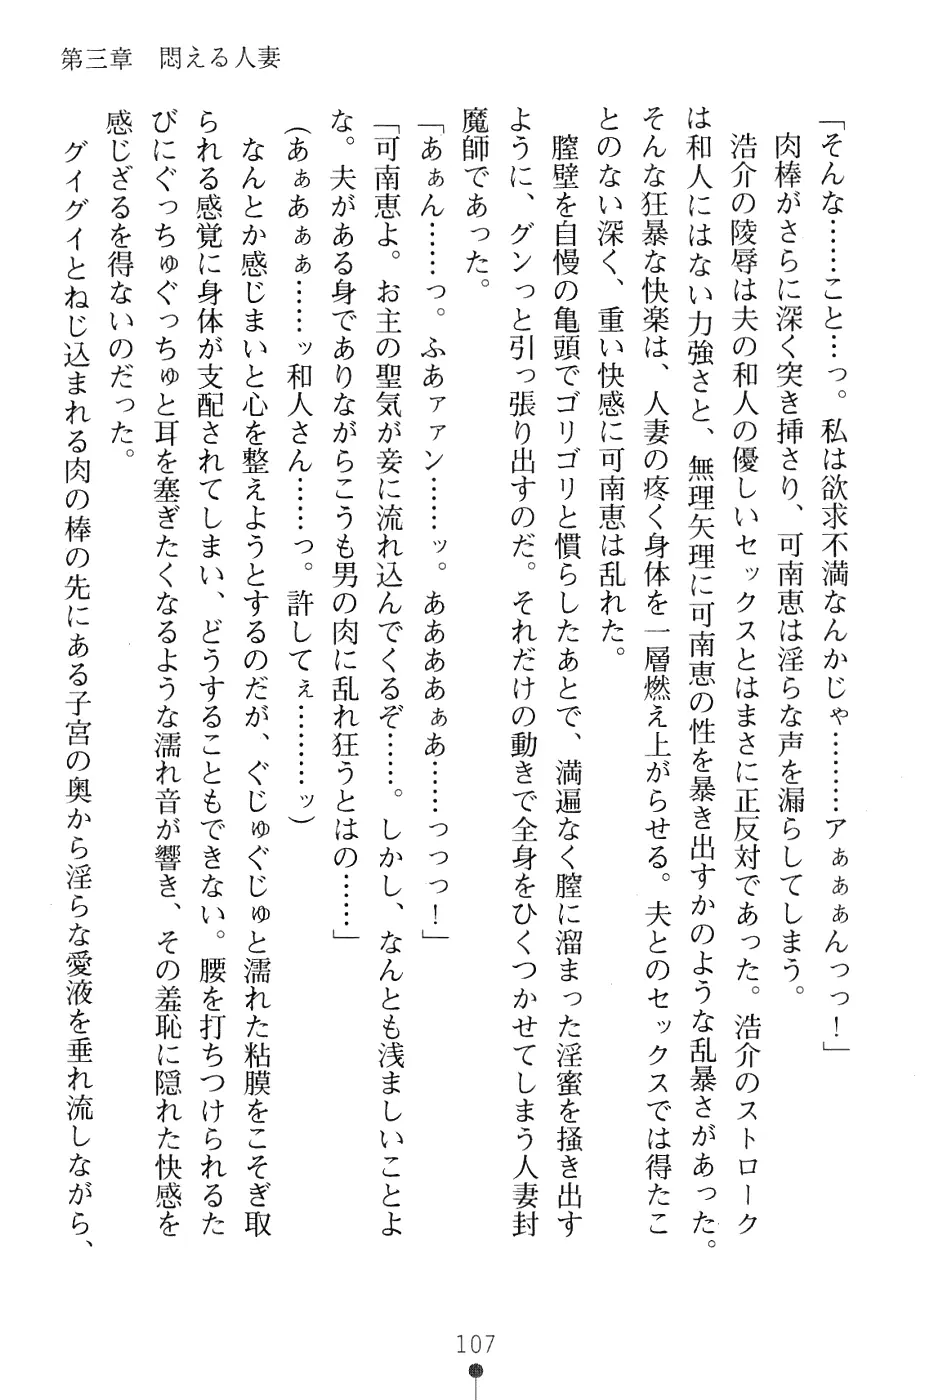 第三章　悶える人妻
「そんな……こと…っ。私は欲求不満なんかじゃ………アぁぁぁんっっ！」
肉棒がさらに深く突き挿さり、可南恵は淫らな声を漏らしてしまう。
浩介の陵辱は夫の和人の優しいセックスとはまさに正反対であった。浩介のストローク
は和人にはない力強さと、無理矢理に可南恵の性を暴き出すかのような乱暴さがあった。
そんな狂暴な快楽は、人妻の疼く身体を一層燃え上がらせる。夫とのセックスでは得たこ
とのない深く、重い快感に可南恵は乱れた。
膣壁を自慢の亀頭でゴリゴリと慣らしたあとで、満遍なく膣に溜まった淫蜜を掻き出す
ように、グンっと引っ張り出すのだ。それだけの動きで全身をひくつかせてしまう人妻封
魔師であった。
「あぁん……っ。ふあァァン……ッ。あああぁあ……っっっ！」
「可南恵よ。お主の聖気が妾に流れ込んでくるぞ……。しかし、なんとも浅ましいことよ
な。夫がある身でありながらこうも男の肉に乱れ狂うとはの……」
(あぁあぁぁ……ッ和人さん……っ。許してぇ………ッ)
なんとか感じまいと心を整えようとするのだが、ぐじゅぐじゅと濡れた粘膜をこそぎ取
られる感覚に身体が支配されてしまい、どうすることもできない。腰を打ちつけられるた
びにぐっちゅぐっちゅと耳を塞ぎたくなるような濡れ音が響き、その羞恥に隠れた快感を
感じざるを得ないのだった。
グイグイとねじ込まれる肉の棒の先にある子宮の奥から淫らな愛液を垂れ流しながら、
107